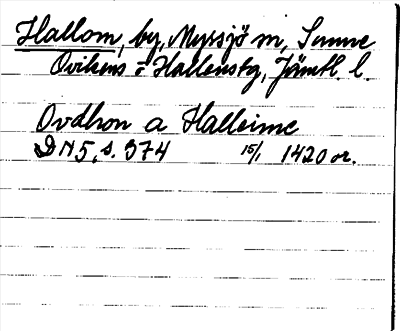 Hallom, by, Myssjö sn, Sunne
Ovikens o Hallens tg, Jämtl. l.
Ovdhon a Halleime
DN 5, s. 374 15/1 1420 or.